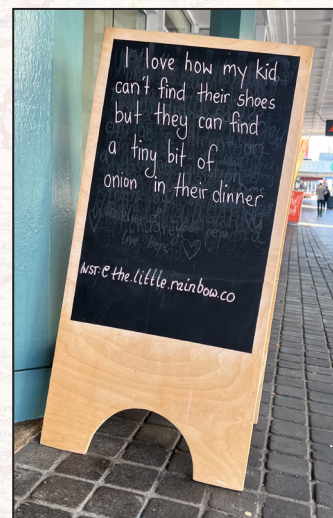 I love how my kid
can't find their shoes
but they can find
a tiny bit of
onion in their dinner
live here
insr:@the.little.rainbow.co